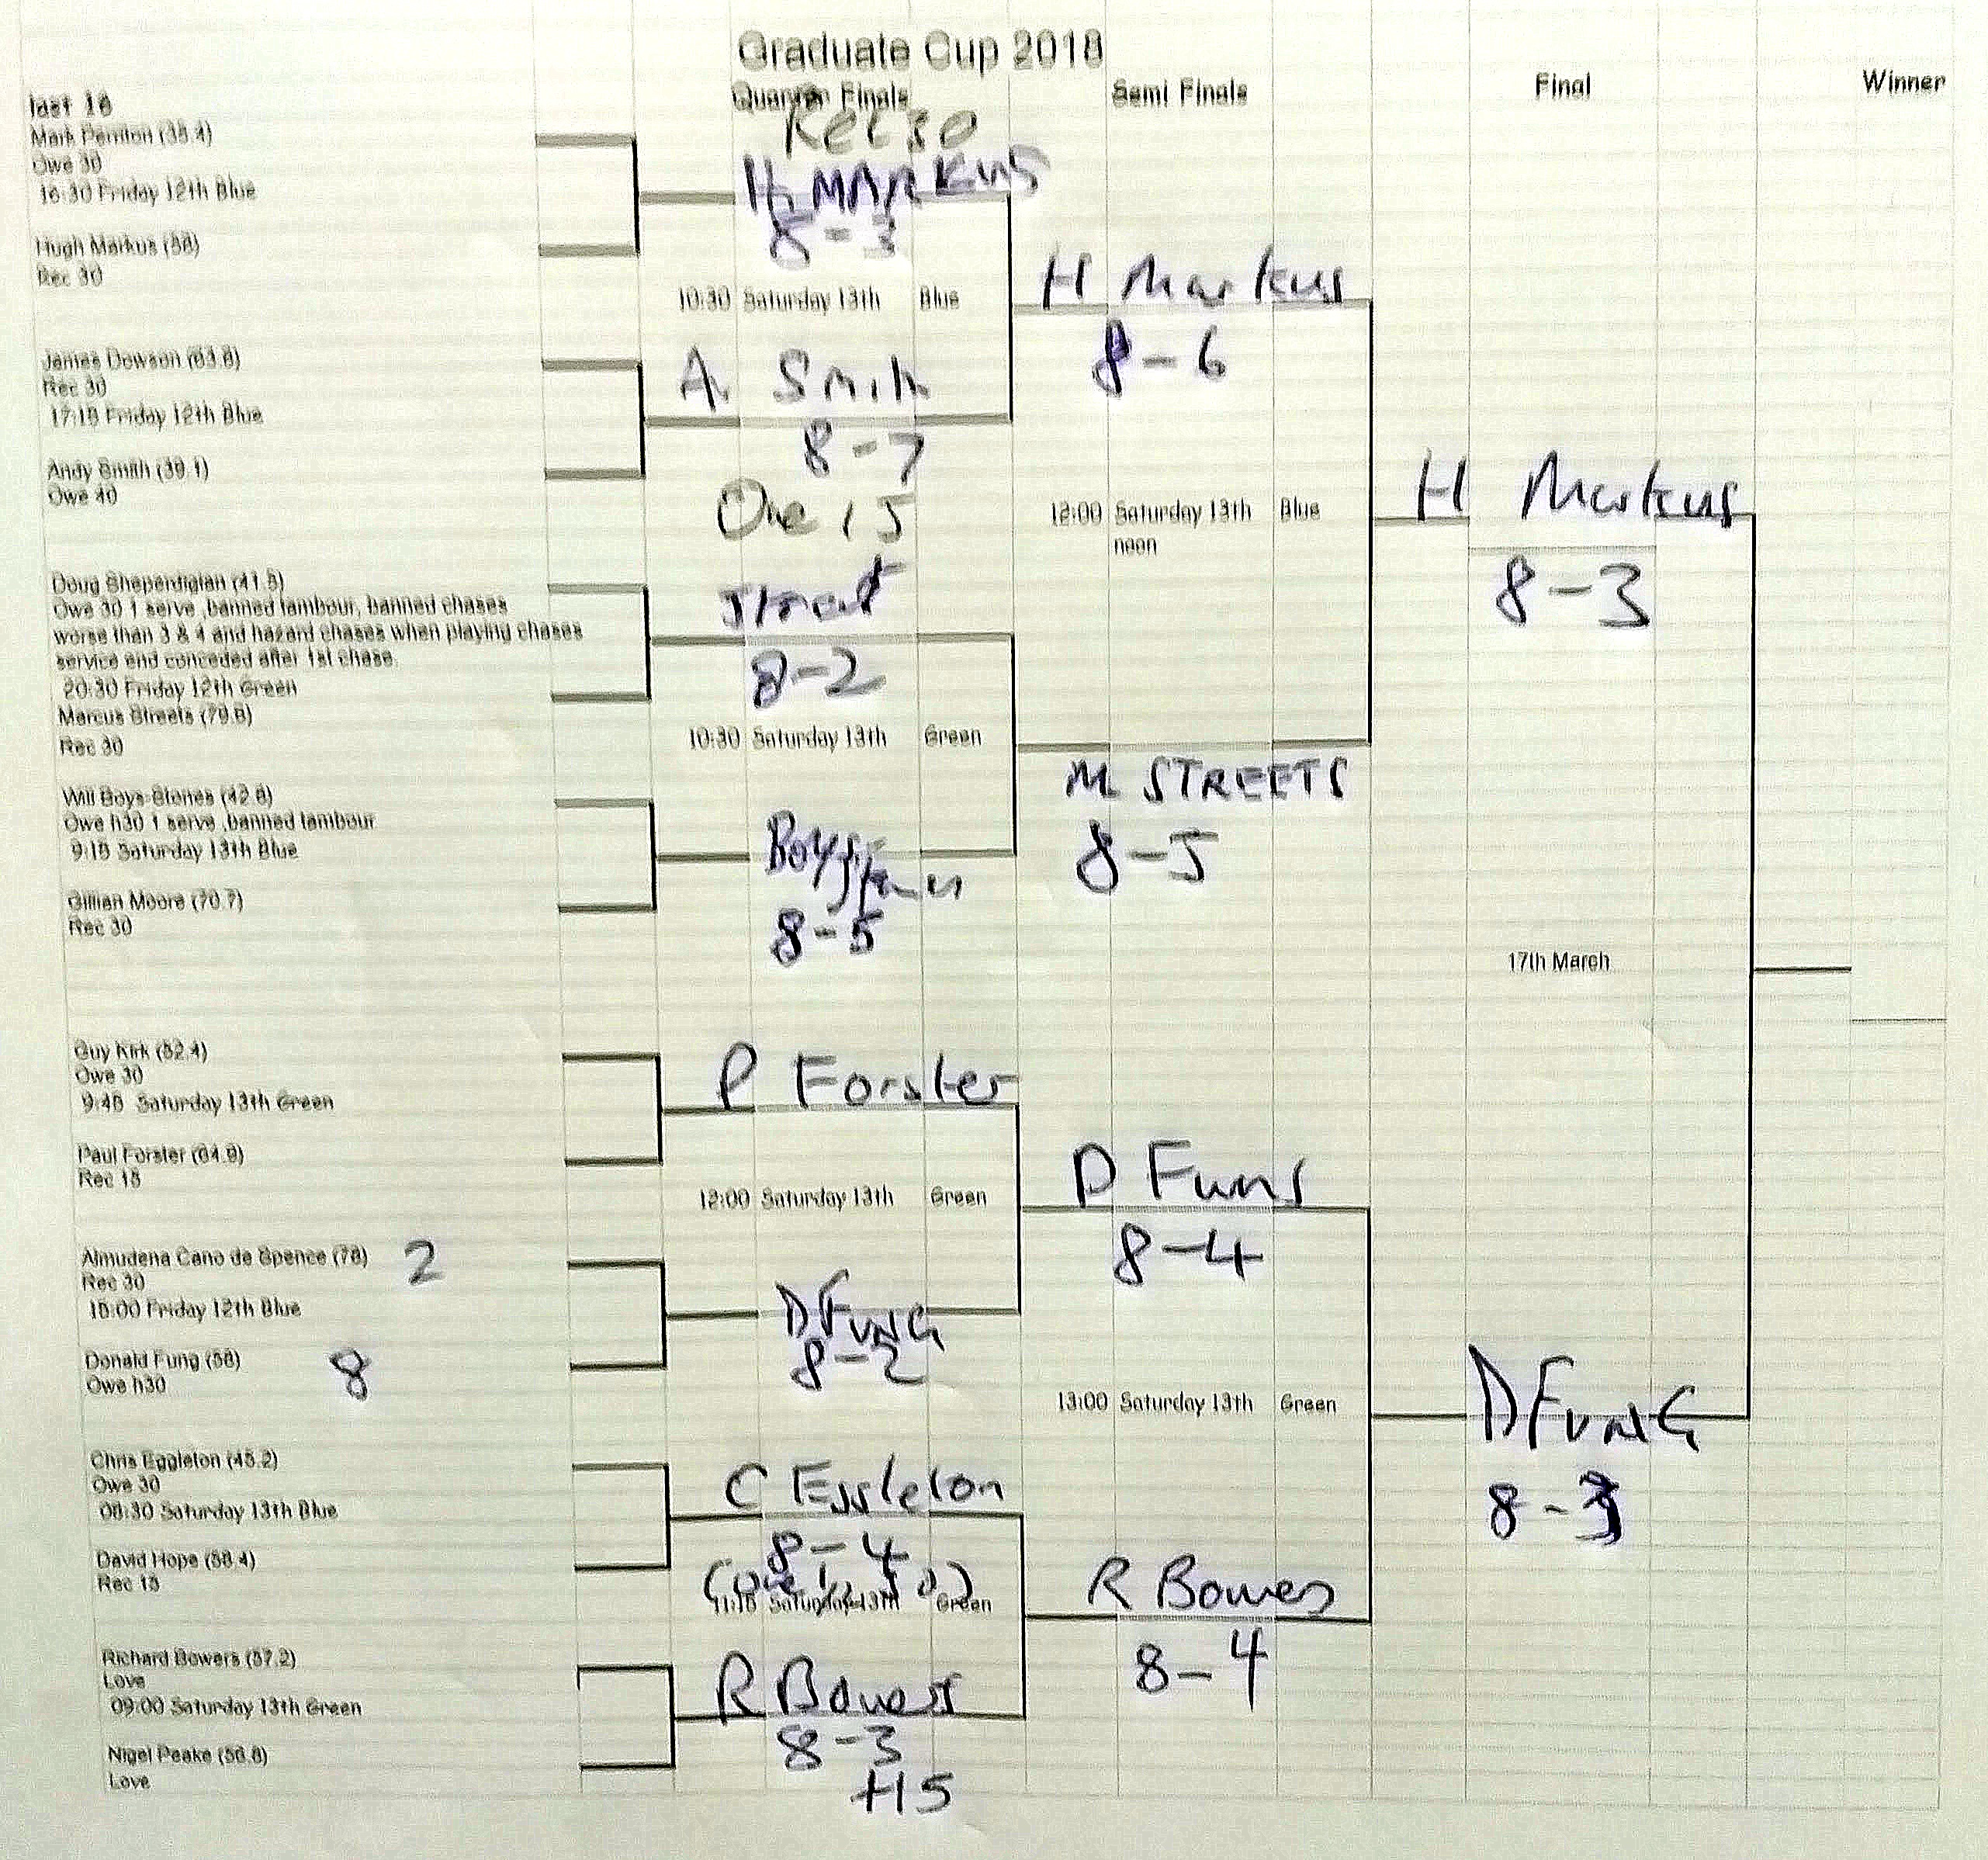 Graduate Cup 2018
last 16
Quarter Finals
Semi Finals
Final
Winner
Mark (38.4)
Owe 30
16:30 Friday 12th Blue
Hugh Markus (58)
Rec 30
James Dowson (63.8)
Rec 30
17:15 Friday 12th Blue
Andy Smith (39.1)
Owe 40
Doug Sheperdigian (41.5)
Owe 30 1 serve ,banned tambour, banned chases
worse than 3 & 4 and hazard chases when playing chases
service end conceded after 1st chase.
20:30 Friday 12th Green
Marcus Streets (79.8)
Rec 30
Will Boys-Stones (42.8)
Owe h30 1 serve ,banned tambour
9:15 Saturday 13th Blue
Gillian Moore (70.7)
Rec 30
Guy Kirk (52.4)
Owe 30
9:45 Saturday 13th Green
Paul Forster (64.9)
Rec 15
Almudena Cano de Spence (78) 2
Rec 30
15:00 Friday 12th Blue
Donald Fung (58) 8
Owe h30
Chris Eggleton (45.2)
Owe 30
08:30 Saturday 13th Blue
David Hope (58.4)
Rec 15
Richard Bowers (57.2)
Love
09:00 Saturday 13th Green
Nigel Peake (56.8)
Love
Rec 30
H MARKUS
8-3
10:30 Saturday 13th Blue
A Smith
8-7
Owe 15
Street
8-2
10:30 Saturday 13th Green
Boys Stones
8-5
P Forster
12:00 Saturday 13th Green
D FUNG
8-2
C Eggleton
8-4
11:15 Saturday 13th Green
R Bowers
8-3
+15
H Markus
8-6
12:00 Saturday 13th Blue
noon
M STREETS
8-5
D Fung
8-4
13:00 Saturday 13th Green
R Bowers
8-4
H Markus
8-3
17th March
D FUNG
8-3